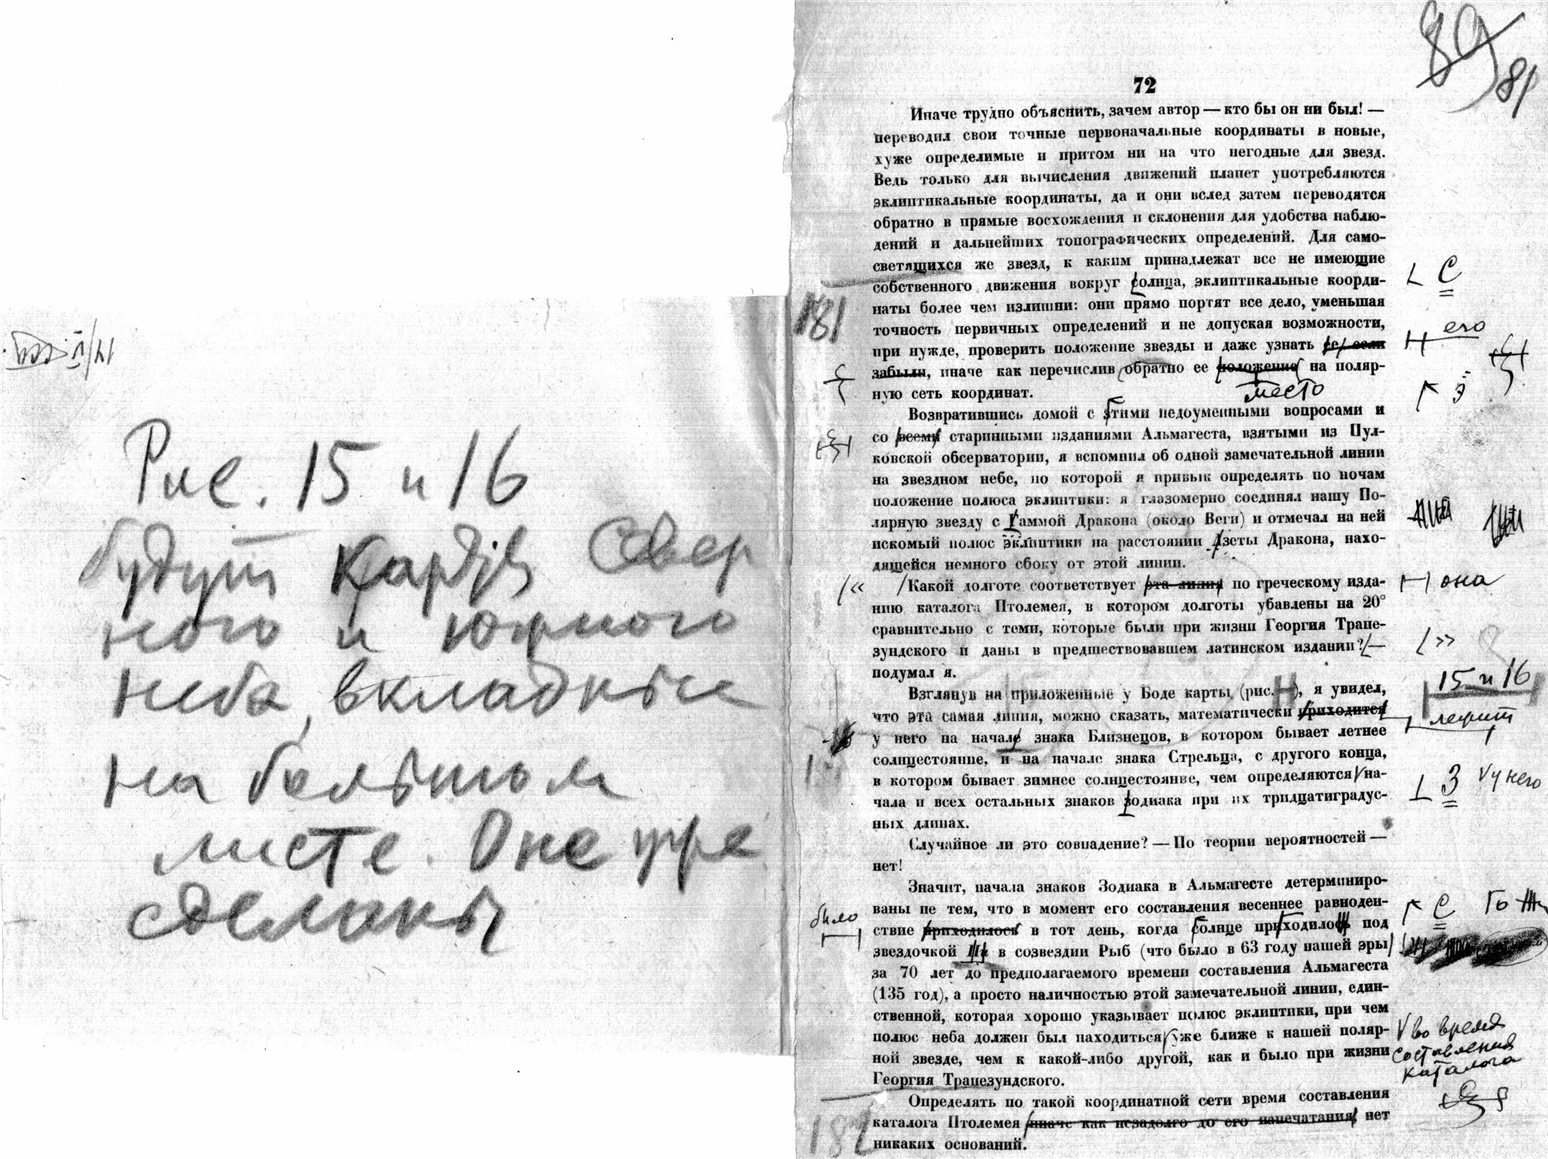 Рис. 15 и 16
будут карты Север
ного и южного
неба, вкладные
на большом
листе. Они уже
сделаны
89
81
72
Иначе трудно объяснить, зачем автор — кто бы он ни был! —
переводил свои точные первоначальные координаты в новые,
хуже определимые и притом ни на что негодные для звезд.
Ведь только для вычисления движений планет употребляются
эклиптикальные координаты, да и они вслед затем переводятся
обратно в прямые восхождения и склонения для удобства наблю-
дений и дальнейших топографических определений. Для само-
светящихся же звезд, к каким принадлежат все не имеющие
собственного движения вокруг солнца, эклиптикальные коорди-
С
наты более чем излишни: они прямо портят все дело, уменьшая
181
точность первичных определений и не допуская возможности,
его
при нужде, проверить положение звезды и даже узнать ее, если
забыли, иначе как перечислив обратно ее положение на поляр-
место
э
ную сеть координат.
Возвратившись домой с этими недоуменными вопросами и
со всеми старинными изданиями Альмагеста, взятыми из Пул-
ковской обсерватории, я вспомнил об одной замечательной линии
на звездном небе, по которой я привык определять по ночам
положение полюса эклиптики: я глазомерно соединял нашу По-
лярную звезду с Гаммой Дракона (около Веги) и отмечал на ней
искомый полюс эклиптики на расстоянии Дзеты Дракона, нахо-
дящейся немного сбоку от этой линии.
«
Какой долготе соответствует эта линия по греческому изда-
она
нию каталога Птолемея, в котором долготы убавлены на 20°
сравнительно с теми, которые были при жизни Георгия Трапе-
зундского и даны в предшествовавшем латинском издании? —
»
подумал я.
15 и 16
Взглянув на приложенные у Боде карты (рис. ), я увидел,
что эта самая линия, можно сказать, математически приходится
лежит
у него на начале знака Близнецов, в котором бывает летнее
солнцестояние, и на начале знака Стрельца, с другого конца,
в котором бывает зимнее солнцестояние, чем определяются на-
З
у него
чала и всех остальных знаков зодиака при их тридцатиградус-
ных длинах.
Случайное ли это совпадение? — По теории вероятностей —
нет!
Значит, начала знаков Зодиака в Альмагесте детерминиро-
ваны не тем, что в момент его составления весеннее равноден-
было
С
ствие приходилось в тот день, когда солнце приходилось под
звездочкой в созвездии Рыб (что было в 63 году нашей эры)
за 70 лет до предполагаемого времени составления Альмагеста
(135 год), а просто наличностью этой замечательной линии, един-
ственной, которая хорошо указывает полюс эклиптики, при чем
во время
составления
каталога
полюс неба должен был находиться уже ближе к нашей поляр-
ной звезде, чем к какой-либо другой, как и было при жизни
Георгия Трапезундского.
Определять по такой координатной сети время составления
182
каталога Птолемея иначе как незадолго до его напечатания, нет
никаких оснований.